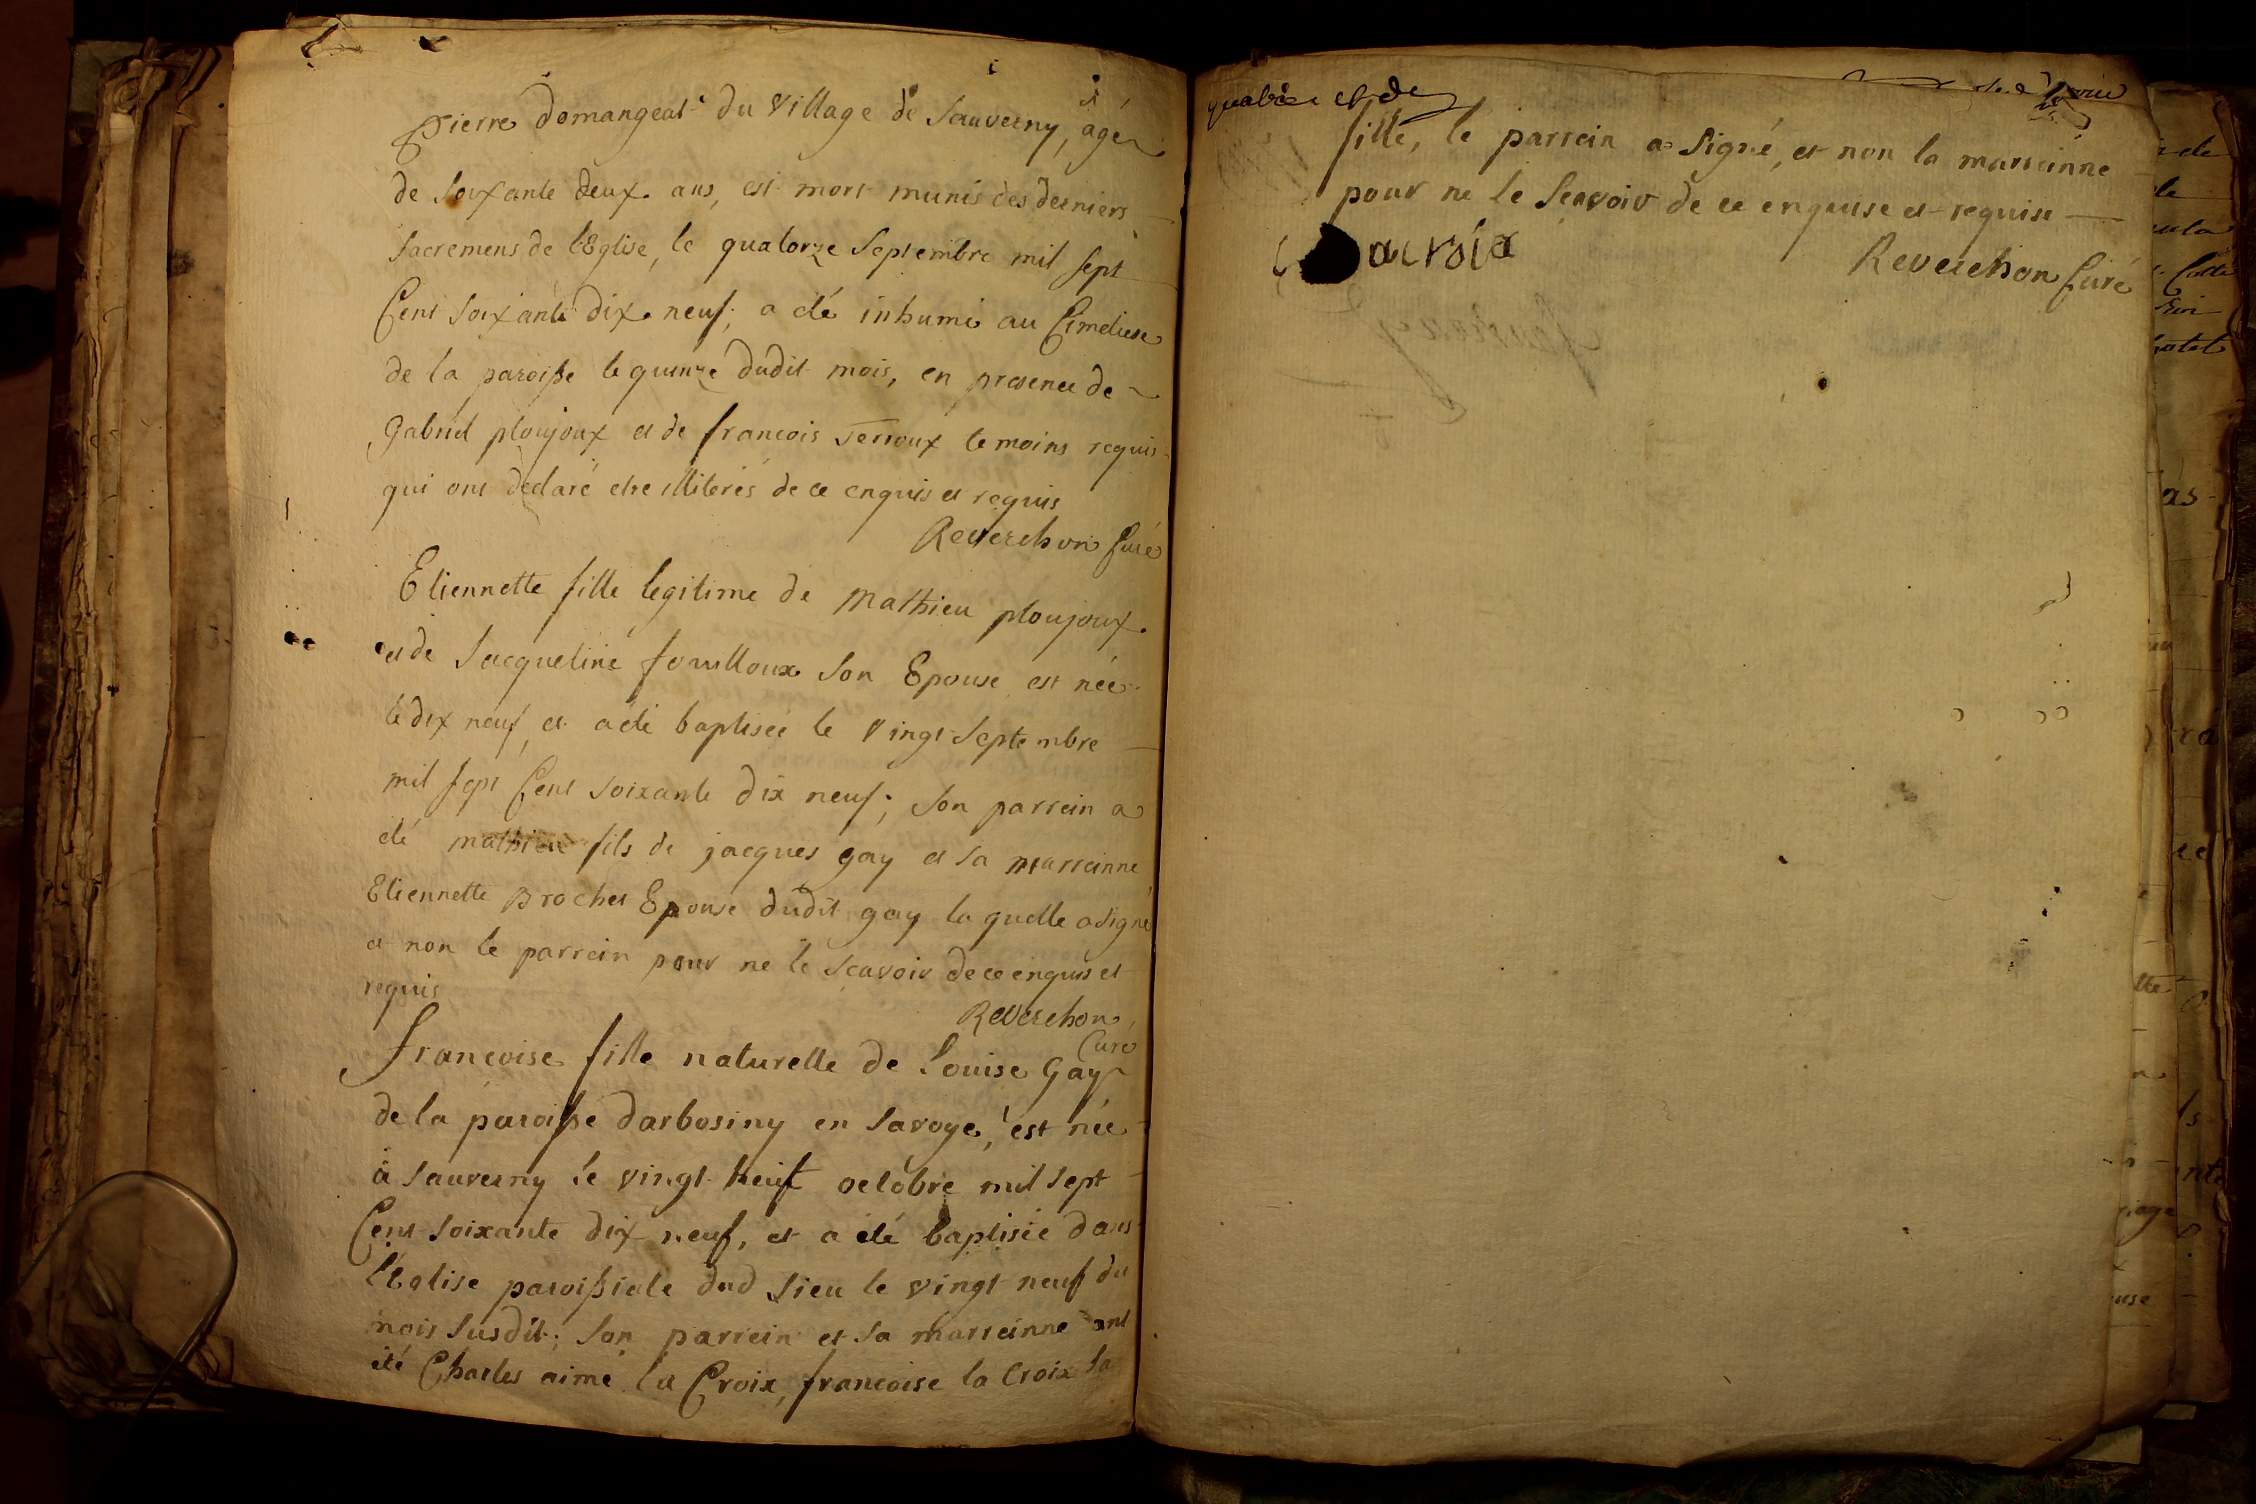 Pierre Domangeat du Village de Sauverny, agé
de soixante deux ans, est mort munis des derniers
sacremens de l'Eglise, le quatorze Septembre mil sept
Cent soixante dix neuf, a eté inhumé au Cimetiere
de la paroisse le quinze dudit mois, en presence de
Gabriel ploujoux et de francois Terroux temoins requis
qui ont declaré etre illiterés de ce enquis et requis
Reverchon Curé
Etiennette fille legitime de Mathieu ploujoux
et de Jacqueline fouilloux son Epouse est née
le dix neuf, et a eté baptisée le vingt Septembre
mil sept Cent soixante dix neuf; son parrein a
eté mathieu fils de jacques gay et sa marreinne
Etiennette Brochet Epouse dudit gay la quelle a signé
et non le parrein pour ne le scavoir de ce enquis et
requis
Reverchon
Curé
francoise fille naturelle de Louise Gay
de la paroisse darbosiny en Savoye, est née
à Sauverny le vingt huit octobre mil sept
Cent soixante dix neuf, et a eté baptisée dans
l'Eglise paroissiale dud lieu le vingt neuf du
mois susdit; son parrein et sa marreinne ont
eté Charles aimé la Croix, francoise la Croix sa
quatre et de
fille, le parrein a signé, et non la marreinne
pour ne le scavoir de ce enquise et requise
Lacroix
Reverchon Curé